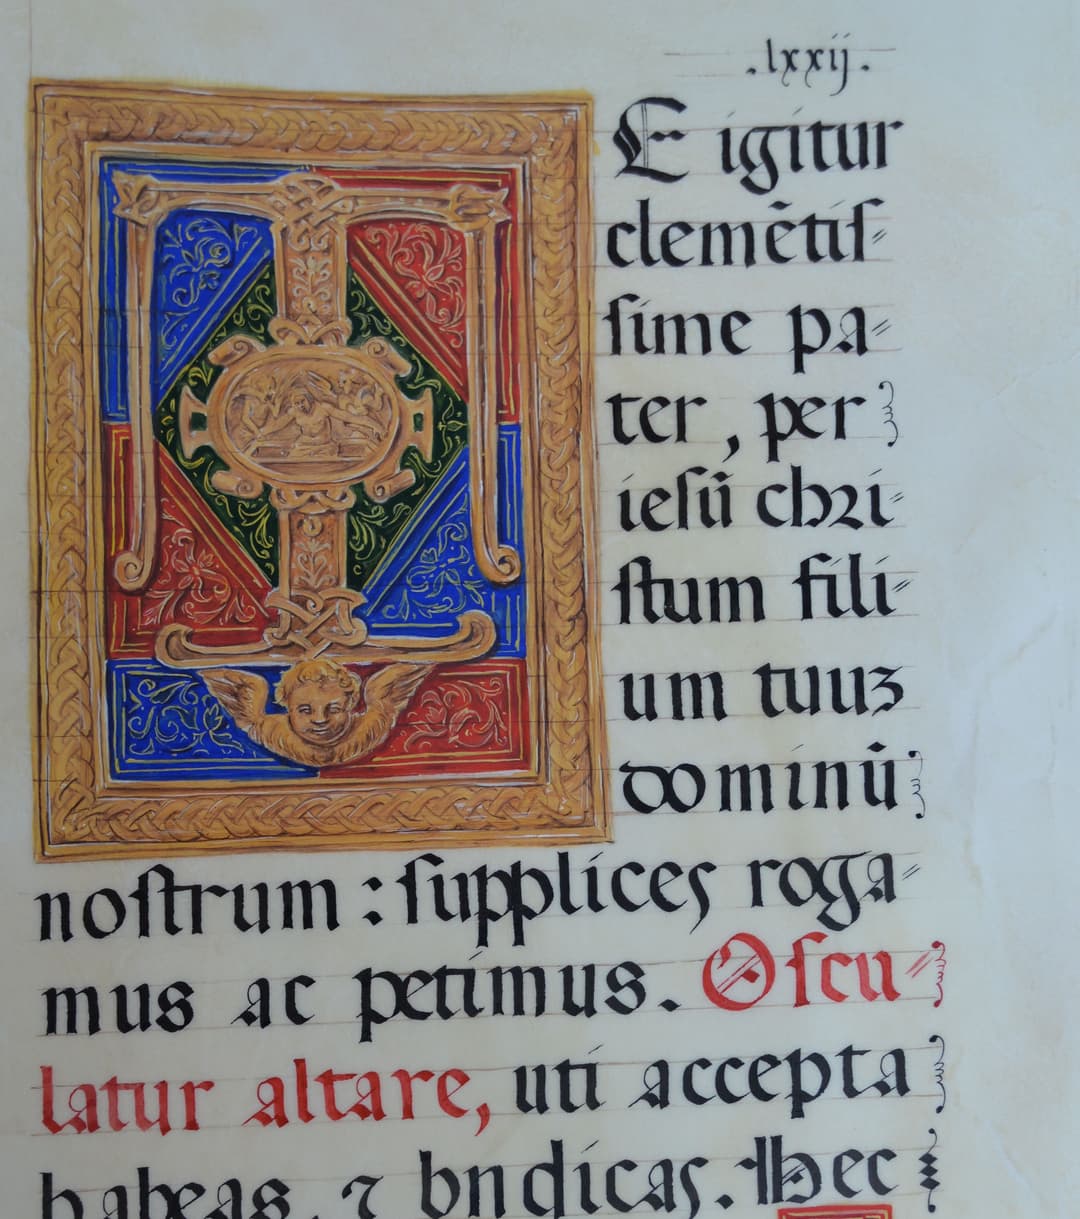 .lxxij.
T
E igitur
clemētiſ⸗
ſime pa⸗
ter, per
ieſū chꝛi⸗
ſtum fili⸗
um tuuz
dominū
noſtrum : ſupplices roga⸗
mus ac petimus. Oſcu⸗
latur altare, uti accepta
habeas, ⁊ bndicas. Hec